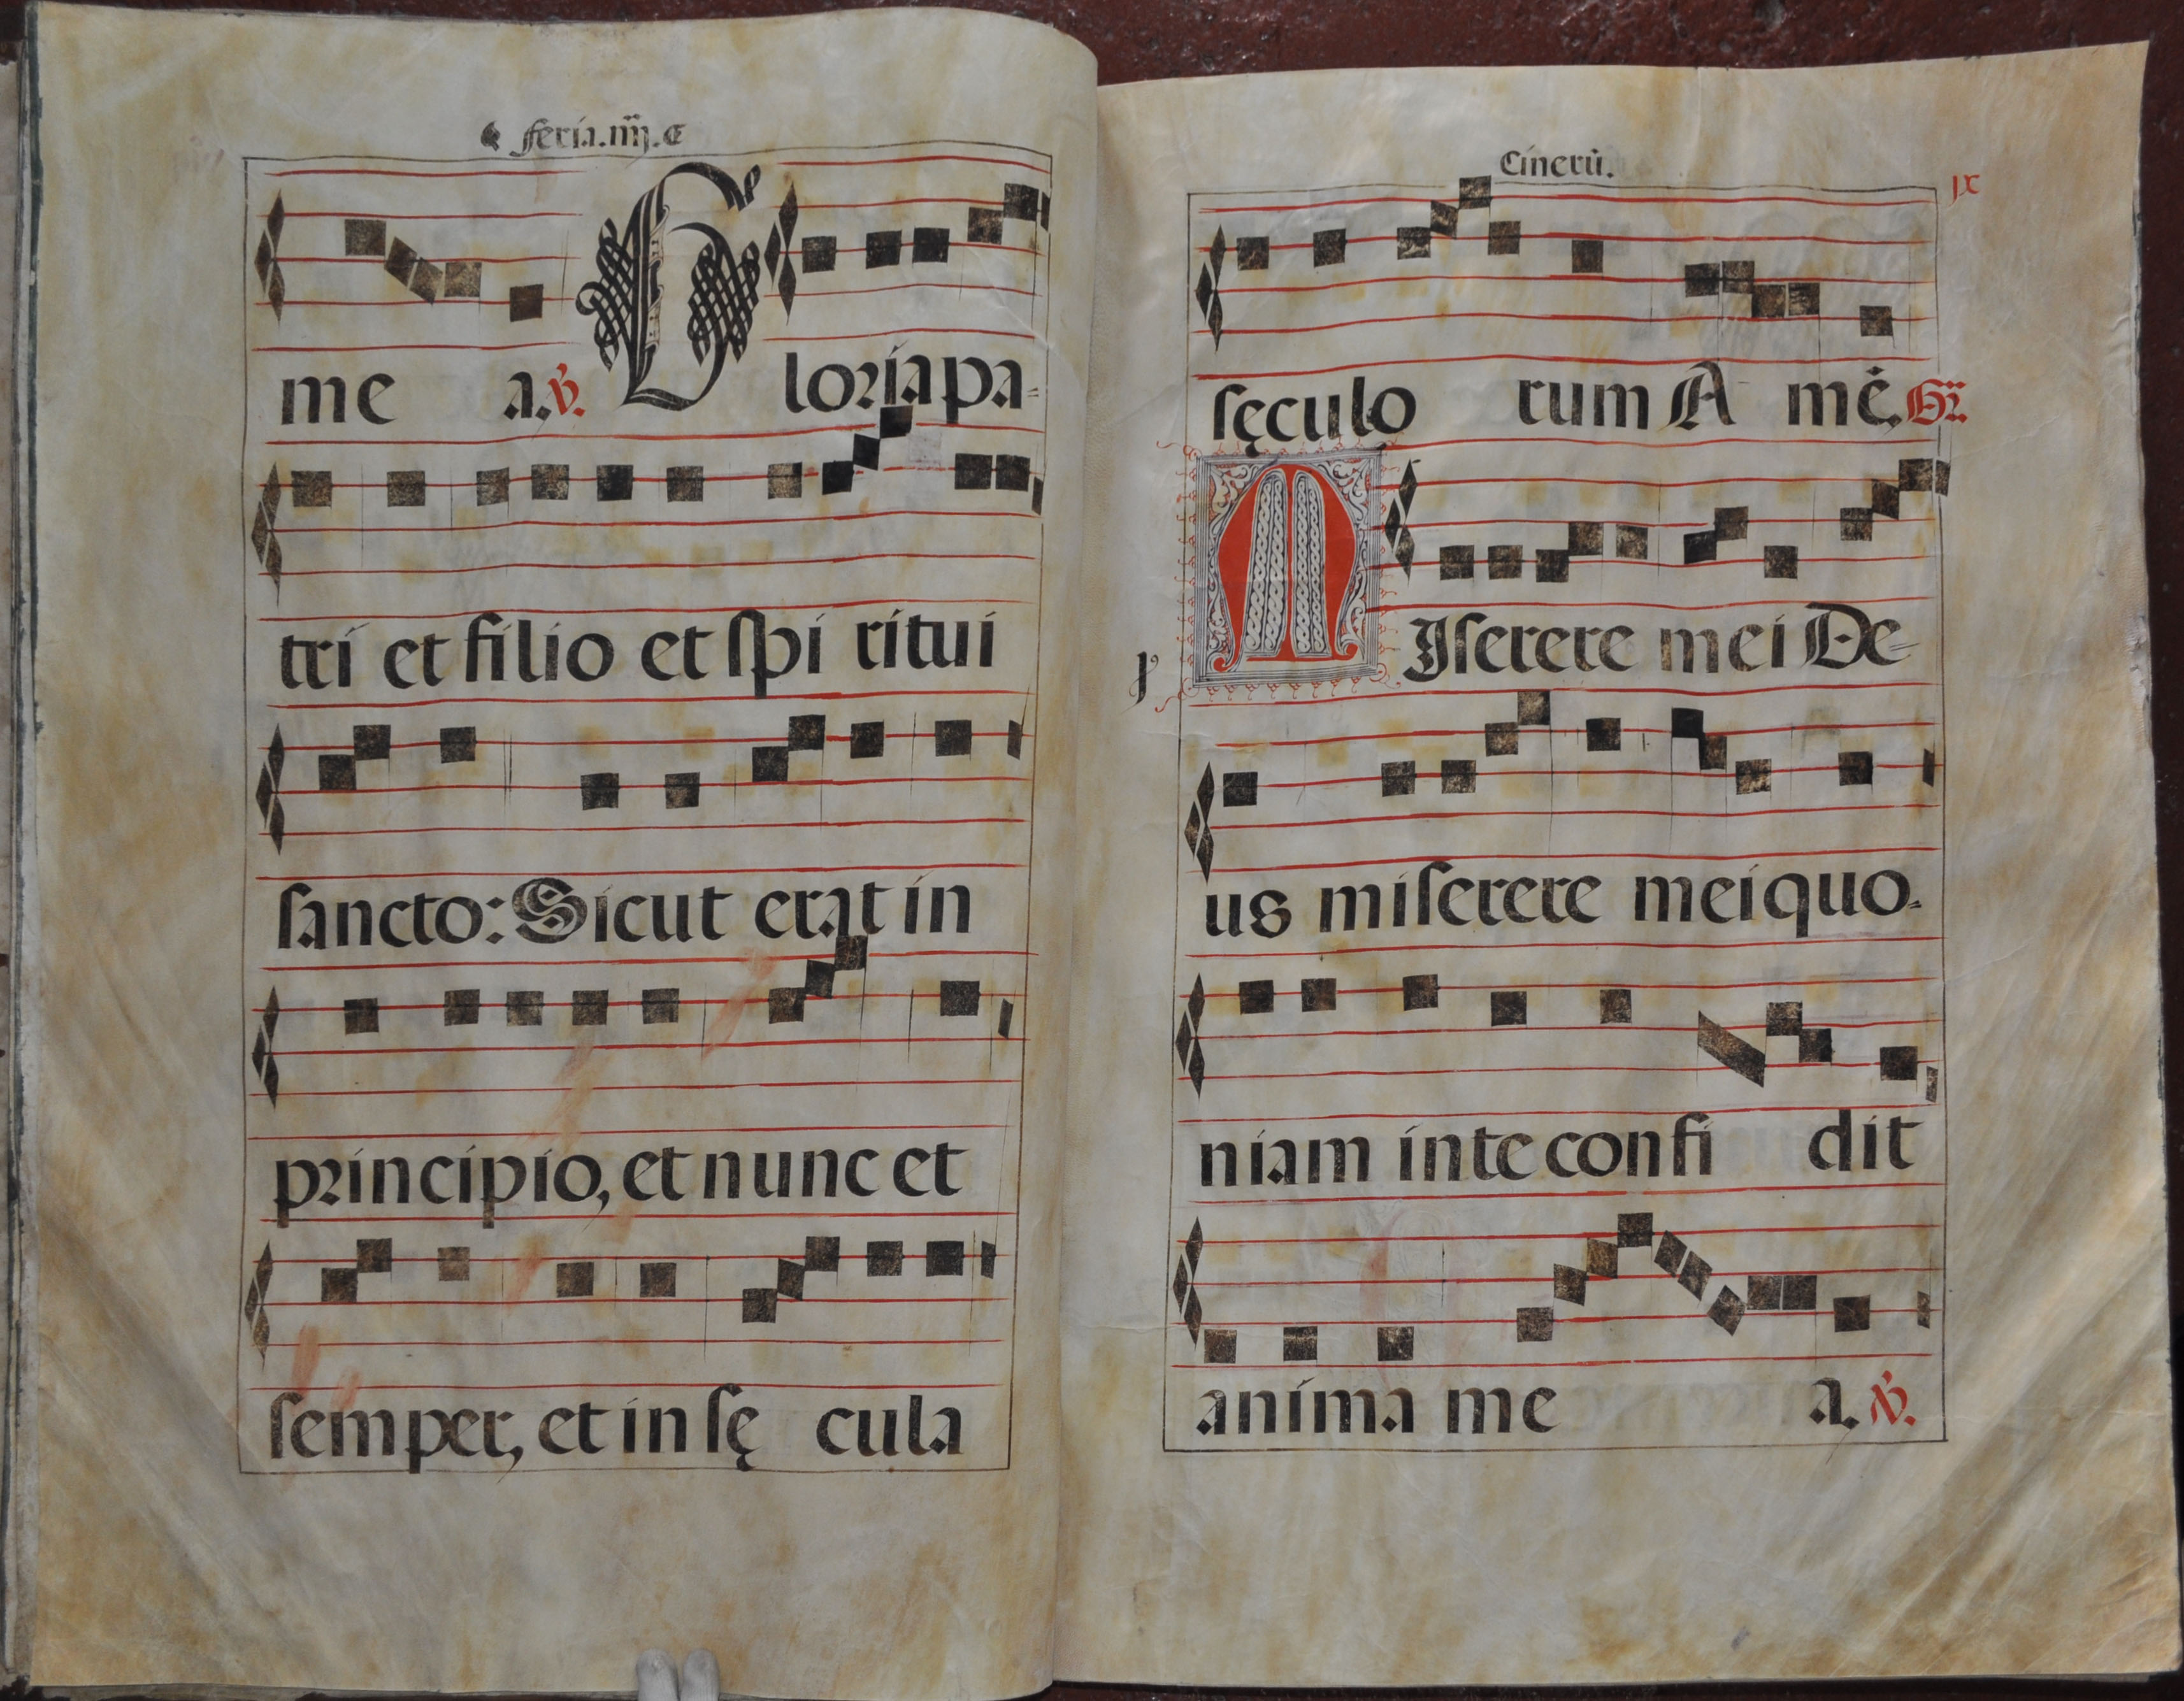 feria.iiij.c
me a. ℣. Gloria pa-
tri et filio et ſpi ritui
ſancto: Sicut erat in
principio, et nunc et
ſemper, et in ſę cula
Cinerū.
ix
ſęculo rum A mē. Gr.
MIſerere mei De-
us miſerere mei quo-
niam in te confi dit
anima me a. ℣.